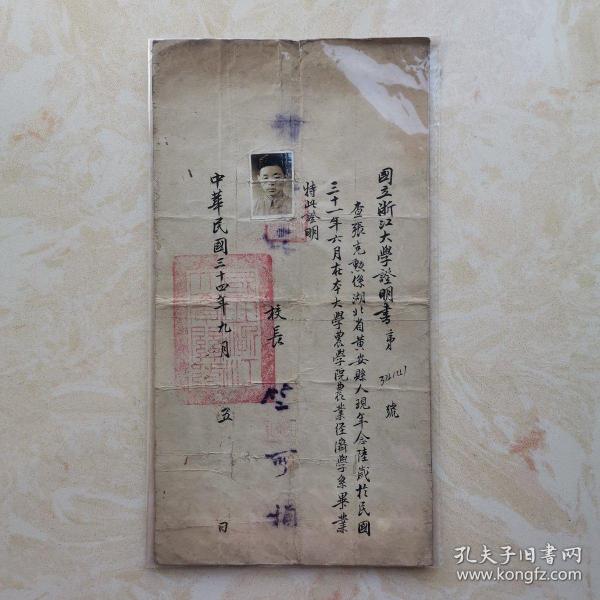 國立浙江大學證明書 第 號
查張克勲係湖北省黃安縣人現年念陸歲於民國
三十一年六月在本大學農學院農業經濟學系畢業
特此證明
校長 竺可楨
中華民國三十四年九月 五 日
孔夫子旧书网
www.kongfz.com